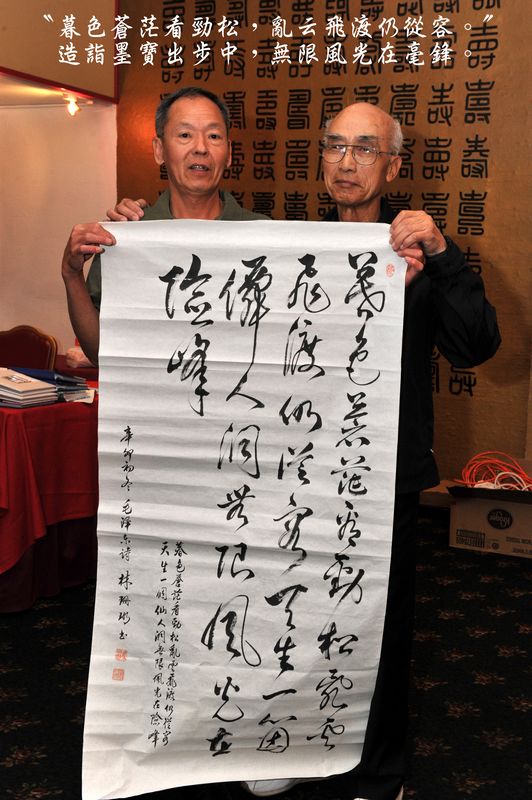 〝暮色蒼茫看勁松，亂云飛渡仍從容。〞
造詣墨寶出步中，無限風光在毫鋒。
暮色蒼茫看勁松亂雲
飛渡仍從容天生一箇
僊人洞無限風光在
險峰
暮色蒼茫看勁松亂雲飛渡仍從容
天生一個仙人洞無限風光在險峰
辛卯初冬毛澤東詩林珊書